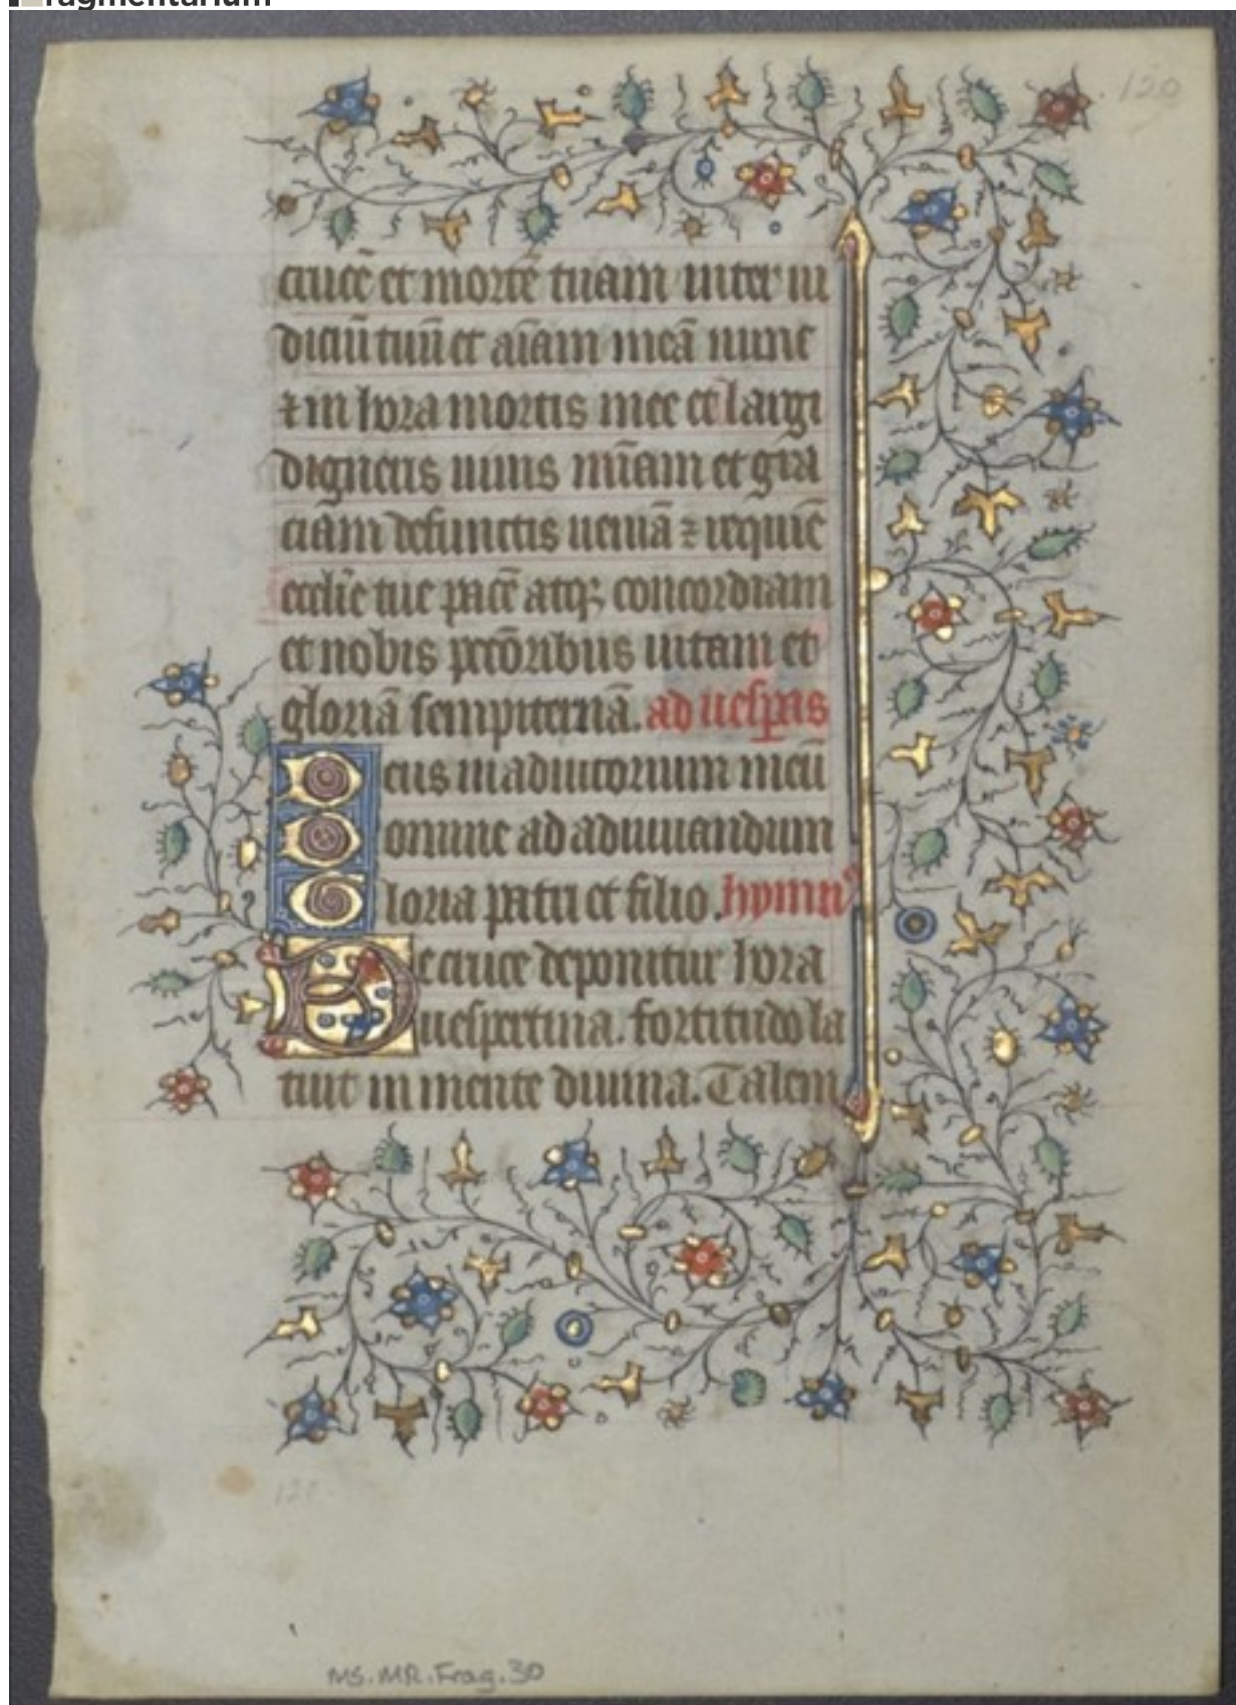 fragmentarium
120
crucē et mortē tuam inter iu
diciū tuū et aīam meā nunc
⁊ in hora mortis mee et largi
digneris uiuis mīam et gra
ciam defunctis ueniā ⁊ requiē
ecclīe tue pacē atqꝫ concordiam
et nobis pctōribus uitam et
gloriā sempiternā. ad uesp̄as
Deus in adiutorium meū
Domine ad adiuuandum
Gloria patri et filio. hymnꝰ
De cruce deponitur hora
uespertina. fortitudo la
tuit in mente diuina. Talem
MS.MR.Frag.30